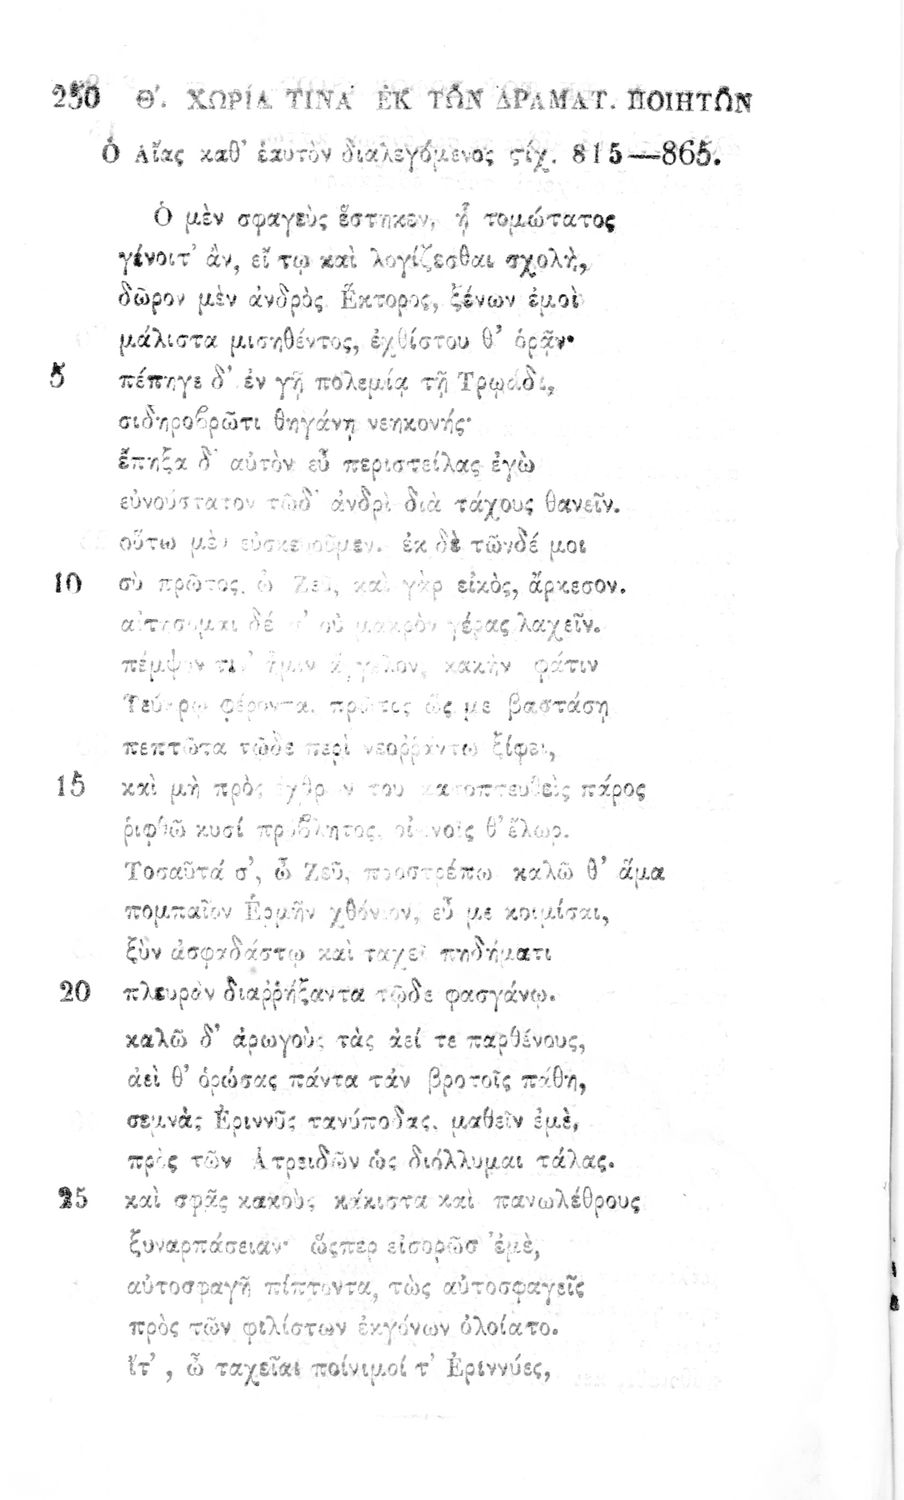 250 Θ΄. ΧΩΡΙΑ ΤΙΝΑ ἘΚ ΤΩ͂Ν ΔΡΑΜΑΤ. ΠΟΙΗΤΩ͂Ν
Ὁ Αἴας καθ᾽ ἑαυτὸν διαλεγόμενος ςίχ. 815—865.
Ὁ μὲν σφαγεὺς ἕστηκεν, ᾗ τομώτατος
γένοιτ᾽ ἂν, εἴ τῳ καὶ λογίζεσθαι σχολὴ,
δῶρον μὲν ἀνδρὸς Ἕκτορος, ξένων ἐμοὶ
μάλιστα μισηθέντος, ἐχθίστου θ᾽ ὁρᾷν·
5 πέπηγε δ᾽ ἐν γῇ πολεμίᾳ τῇ Τρῳάδι,
σιδηροβρῶτι θηγάνῃ νεηκονής·
ἔπηξα δ᾽ αὐτὸν εὖ περιστείλας ἐγὼ
εὐνούστατον τῶδ᾽ ἀνδρὶ διὰ τάχους θανεῖν.
οὕτω μὲν εὐσκευοῦμεν. ἐκ δὲ τῶνδέ μοι
10 σὺ πρῶτος, ὦ Ζεῦ, καὶ γὰρ εἰκὸς, ἄρκεσον.
αἰτήσομαι δέ σ᾽ οὐ μακρὸν γέρας λαχεῖν.
πέμψον τιν᾽ ἡμῖν ἄγγελον, κακὴν φάτιν
Τεύκρῳ φέροντα, πρῶτος ὥς με βαστάσῃ
πεπτῶτα τῶδε περὶ νεοῤῥάντω ξίφει,
15 καὶ μὴ πρὸς ἐχθρῶν του κατοπτευθεὶς πάρος
ῥιφθῶ κυσί πρόβλητος, οἰωνοῖς θ᾽ ἕλωρ.
Τοσαῦτά σ᾽, ὦ Ζεῦ, προστρέπω καλῶ θ᾽ ἅμα
πομπαῖον Ἑρμῆν χθόνιον, εὖ με κοιμίσαι,
ξὺν ἀσφαδάστῳ καὶ ταχεῖ πηδήματι
20 πλευρὰν διαῤῥήξαντα τῷδε φασγάνῳ.
καλῶ δ᾽ ἀρωγοὺς τὰς ἀεί τε παρθένους,
ἀεὶ θ᾽ ὁρώσας πάντα τἀν βροτοῖς πάθη,
σεμνὰς Ἐριννῦς τανύποδας, μαθεῖν ἐμὲ,
πρὸς τῶν Ἀτρειδῶν ὡς διόλλυμαι τάλας.
25 καὶ σφᾶς κακοὺς κάκιστα καὶ πανωλέθρους
ξυναρπάσειαν· ὥςπερ εἰσορῶσ᾽ ἐμὲ,
αὐτοσφαγῆ πίπτοντα, τὼς αὐτοσφαγεῖς
πρὸς τῶν φιλίστων ἐκγόνων ὀλοίατο.
ἴτ᾽, ὦ ταχεῖαι ποίνιμοί τ᾽ Ἐριννύες,